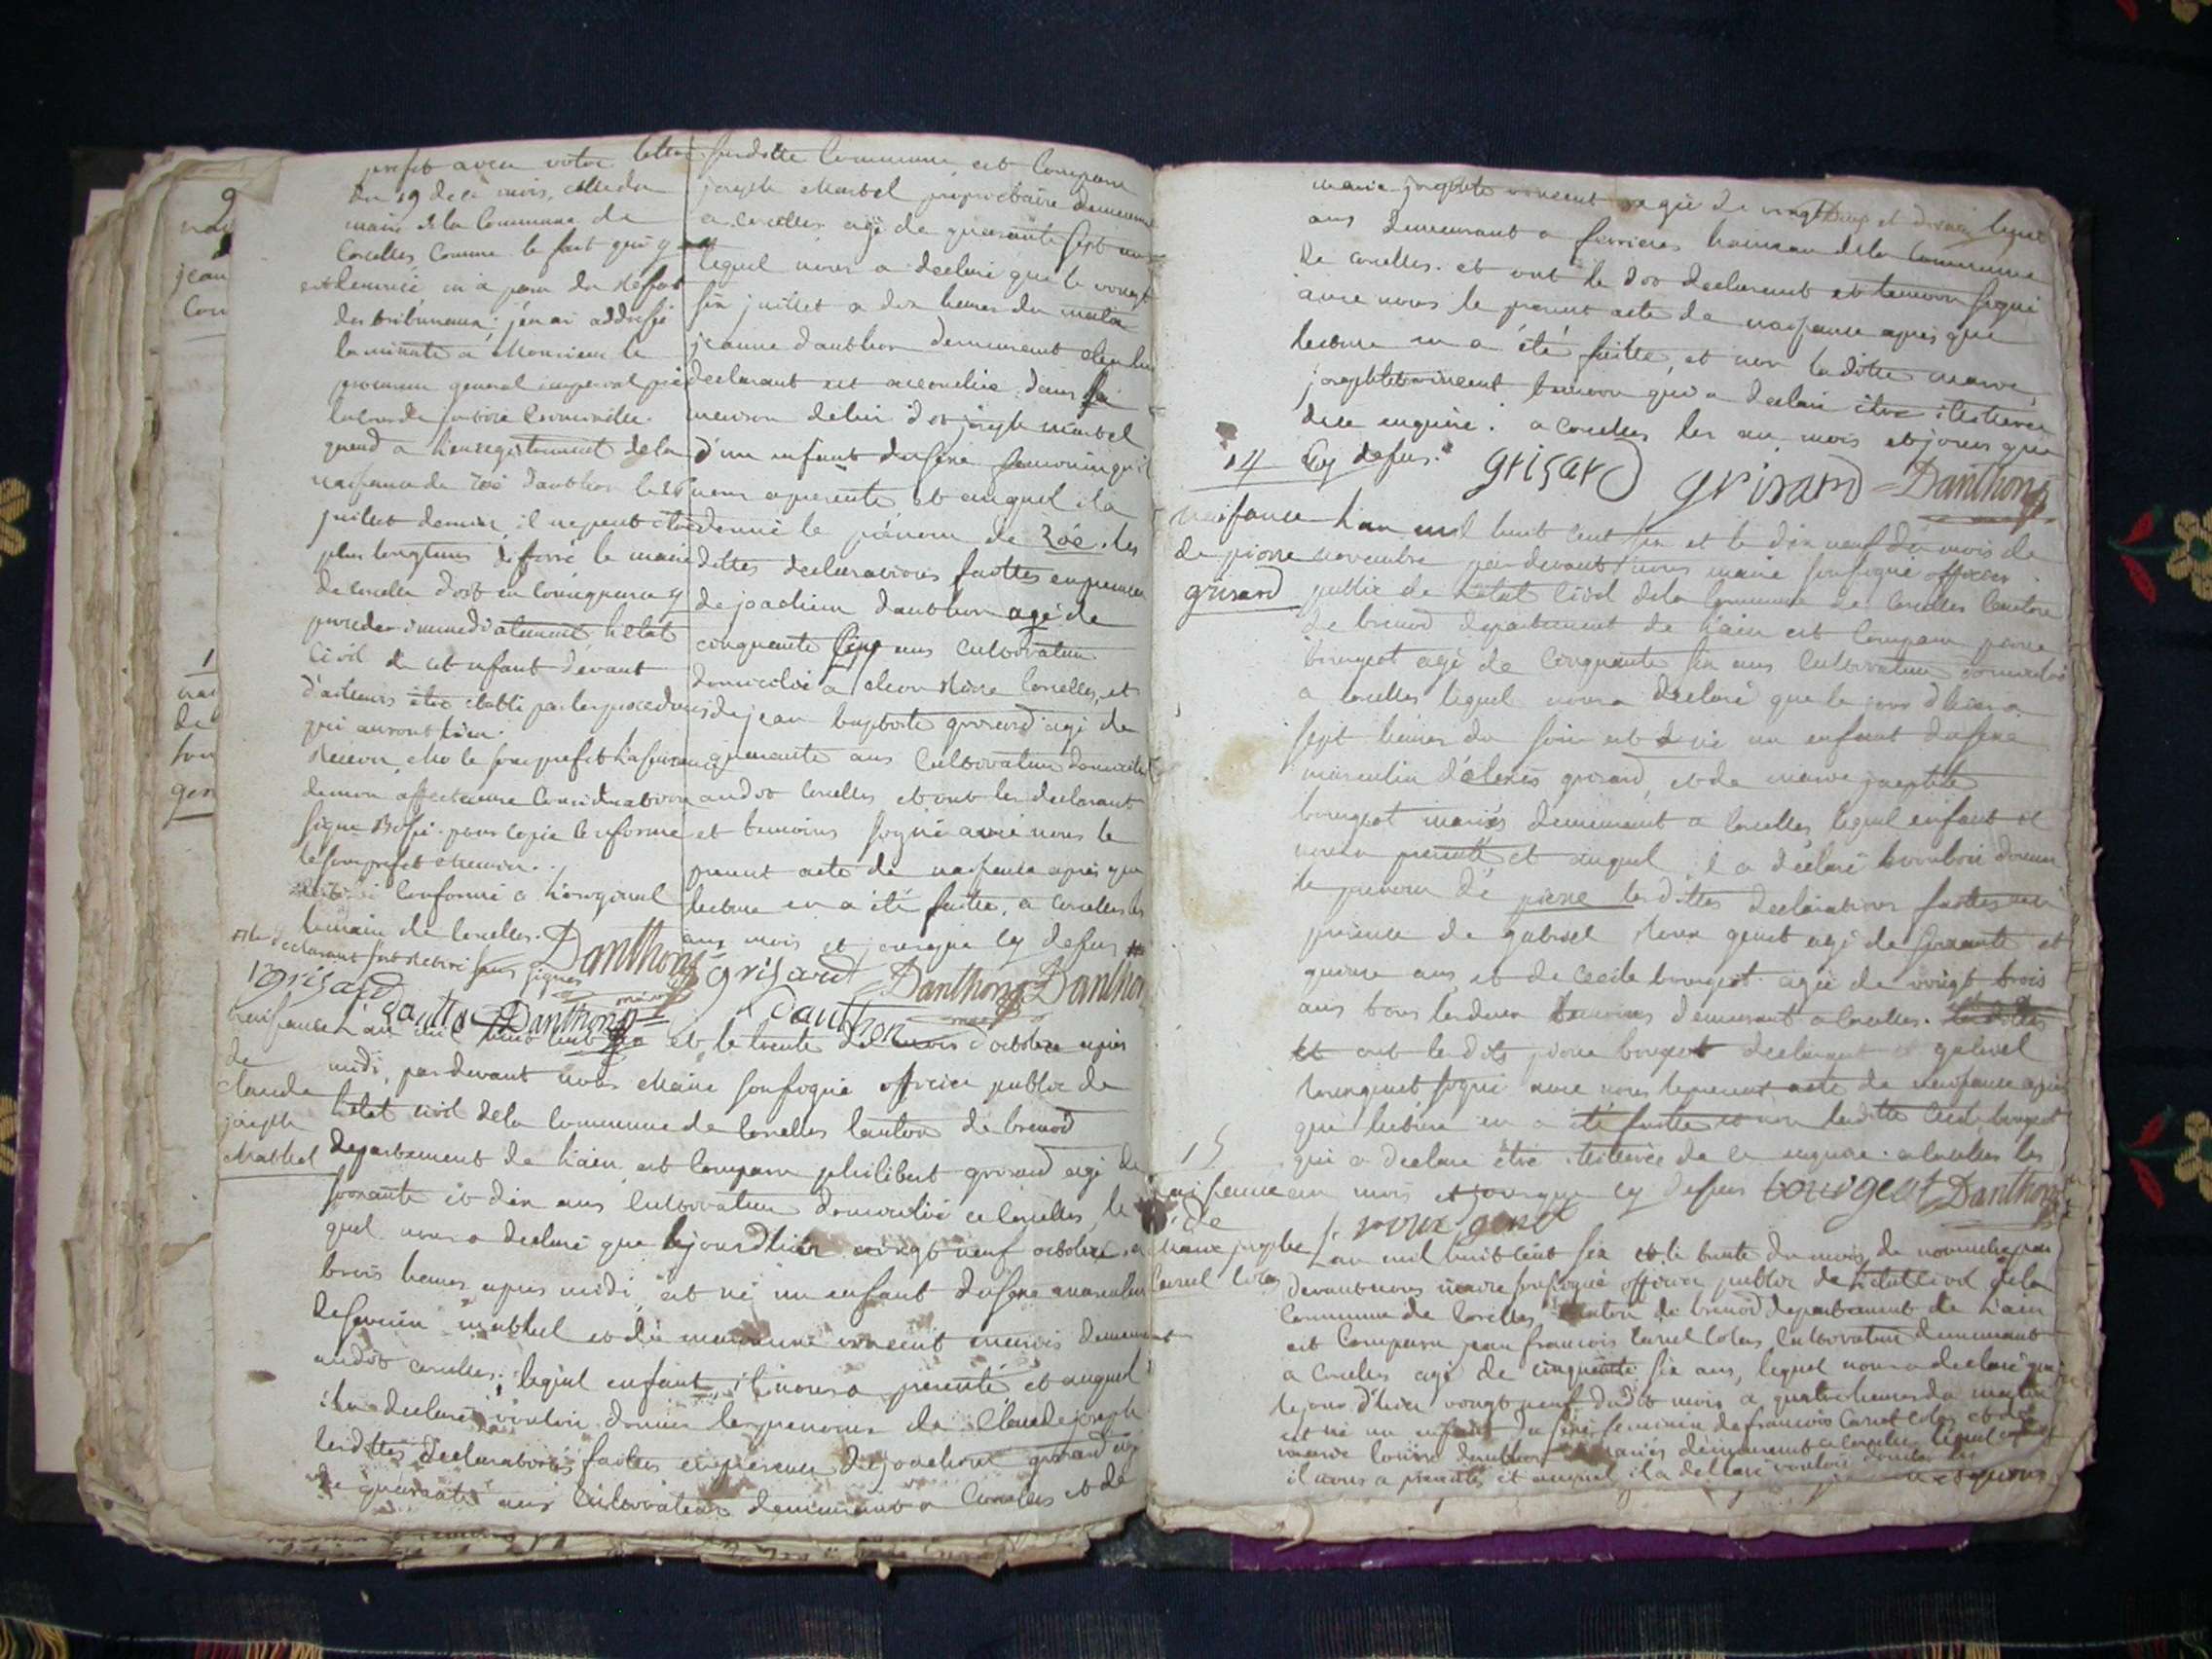 prefet avec votre lettre
du 19 de ce mois, celle du
maire de la Commune de
Corcelles Comme le fait qui y
est denoncé
des tribuneaux; j'en ai addressé
la minute a Monsieur le
procureur general imperial près
la Cour de justice Criminelle.
quand a l'enregistrement de la
naissance de Zoé Danthon le 26
juillet dernier, il ne peut être
plus longtems differré le maire
de Corcelles doit en Conséquence y
proceder immediatement l'état
Civil de cet enfant devant
d'ailleurs être établi par les procedures
qui auront lieu.
Recevez, Mr le sous prefet l'assurance
de mon affectueuse Consideration
signé Bossi. pour Copie Conforme
le sous prefet
Conforme a l'original
le maire de Corcelles. Danthon
declarant sans signer
susditte Commune est Comparu
joseph Martel propriétaire demeurant
a Corcelles agé de quarante sept ans
lequel nous a declaré que le vingt
six juillet a dix heures du matin
jeanne danthon demeurant chez lui
declarant est accouchée dans la
maison de lui dit joseph Martel
d'un enfant du sexe feminin qu'il
nous a presenté et auquel il a
donné le prénom de Zoé. les
dittes declarations faittes en presence
de joachim danthon agé de
cinquante cinq ans Cultivateur
domicilié a Corcelles, et
de jean baptiste grisard agé de
quarante ans Cultivateur domicilié
audit Corcelles et ont les declarant
et temoins signé avec nous le
present acte de naissance après que
lecture en a été faitte, a Corcelles les
ans mois et jour que cy dessus
grisard Danthon Danthon
13 grisard dautho Danthon maire Dauthon
Naissance l'an mil huit cent six et le trente du mois d'octobre après
de midi, par devant nous Maire soussigné officier public de
Claude l'etat civil de la Commune de Corcelles Canton de brenod
joseph departement de l'ain est Comparu philibert grisard agé de
Mathel soixante et dix ans Cultivateur domicilié a Corcelles, le
quel nous a declaré que le jour d'hier vingt neuf octobre a
trois heures après midi est né un enfant du sexe masculin
de mathel et de marianne vincent mariés demeurant
audit Corcelles. lequel enfant, il nous a presenté et auquel
il a declaré vouloir donner les prenoms de Claude joseph
lesdittes declarations faittes en presence de joachim grisard agé
de quarante ans Cultivateur demeurant a Corcelles et de
marie josephte vincent agée de vingt
ans demeurant a ferrieres hameau de la Commune
de Corcelles. et ont le dit declarant et temoin signé
avec nous le present acte de naissance après que
lecture en a été faitte, et non laditte marie
josephte vincent temoin qui a declaré être illiterée
de ce enquise. a Corcelles les an mois et jour que
14 Cy dessus. grisard grisard Danthon
naissance l'an mil huit cent six et le dix neuf du mois de
de pierre novembre par devant nous maire soussigné officier
grisard public de l'etat Civil de la Commune de Corcelles Canton
de brenod departement de l'ain est Comparu pierre
bourgeot agé de Cinquante six ans Cultivateur domicilié
a Corcelles lequel nous a declaré que le jour d'hier a
sept heures du soir est né un enfant du sexe
masculin d'alexis grisard, et de marie josephte
bourgeot mariés demeurant a Corcelles lequel enfant il
nous a presenté et auquel il a declaré vouloir donner
le prenom de pierre lesdittes declarations faittes en
presence de gabriel Roux genet agé de soixante et
quinze ans, et de Cecile bourgeot agée de vingt trois
ans tous les deux temoins demeurant a Corcelles.
et ont lesdits pierre bourgeot declarant et gabriel
roux genet signé avec nous le present acte de naissance après
que lecture en a été faitte et non laditte Cecile bourgeot
15 qui a declaré être illiterée de ce enquise. a Corcelles les
naissance an mois et jour que cy dessus bourgeot Danthon
de roux genet
marie josephte L'an mil huit cent six et le trente du mois de novembre par
Carrel Colas devant nous maire soussigné officier public de l'etat Civil de la
Commune de Corcelles Canton de brenod departement de l'ain
est Comparu jean françois Carrel Colas Cultivateur demeurant
a Corcelles agé de cinquante six ans, lequel nous a declaré que
le jour d'hier vingt neuf dudit mois a quatre heures du matin
est né un enfant du sexe feminin de françois Carrel Colas et de
marie louise danthon mariés demeurant a Corcelles lequel enfant
il nous a presenté et auquel il a declaré vouloir donner les
prenoms